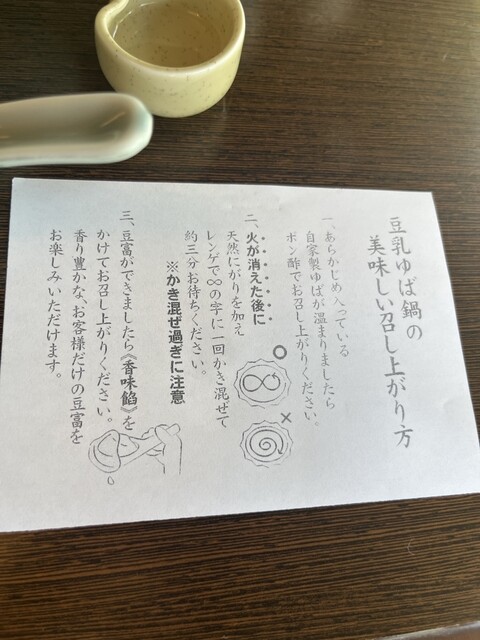 豆乳ゆば鍋の
美味しい召し上がり方
一、あらかじめ入っている
自家製ゆばが温まりましたら
ポン酢でお召し上がりください。
二、火が消えた後に
天然にがりを加え
レンゲで∞の字に一回かき混ぜて
約三分お待ちください。
※かき混ぜ過ぎに注意
三、豆富ができましたら《香味餡》を
かけてお召し上がりください。
香り豊かな、お客様だけの豆富を
お楽しみいただけます。